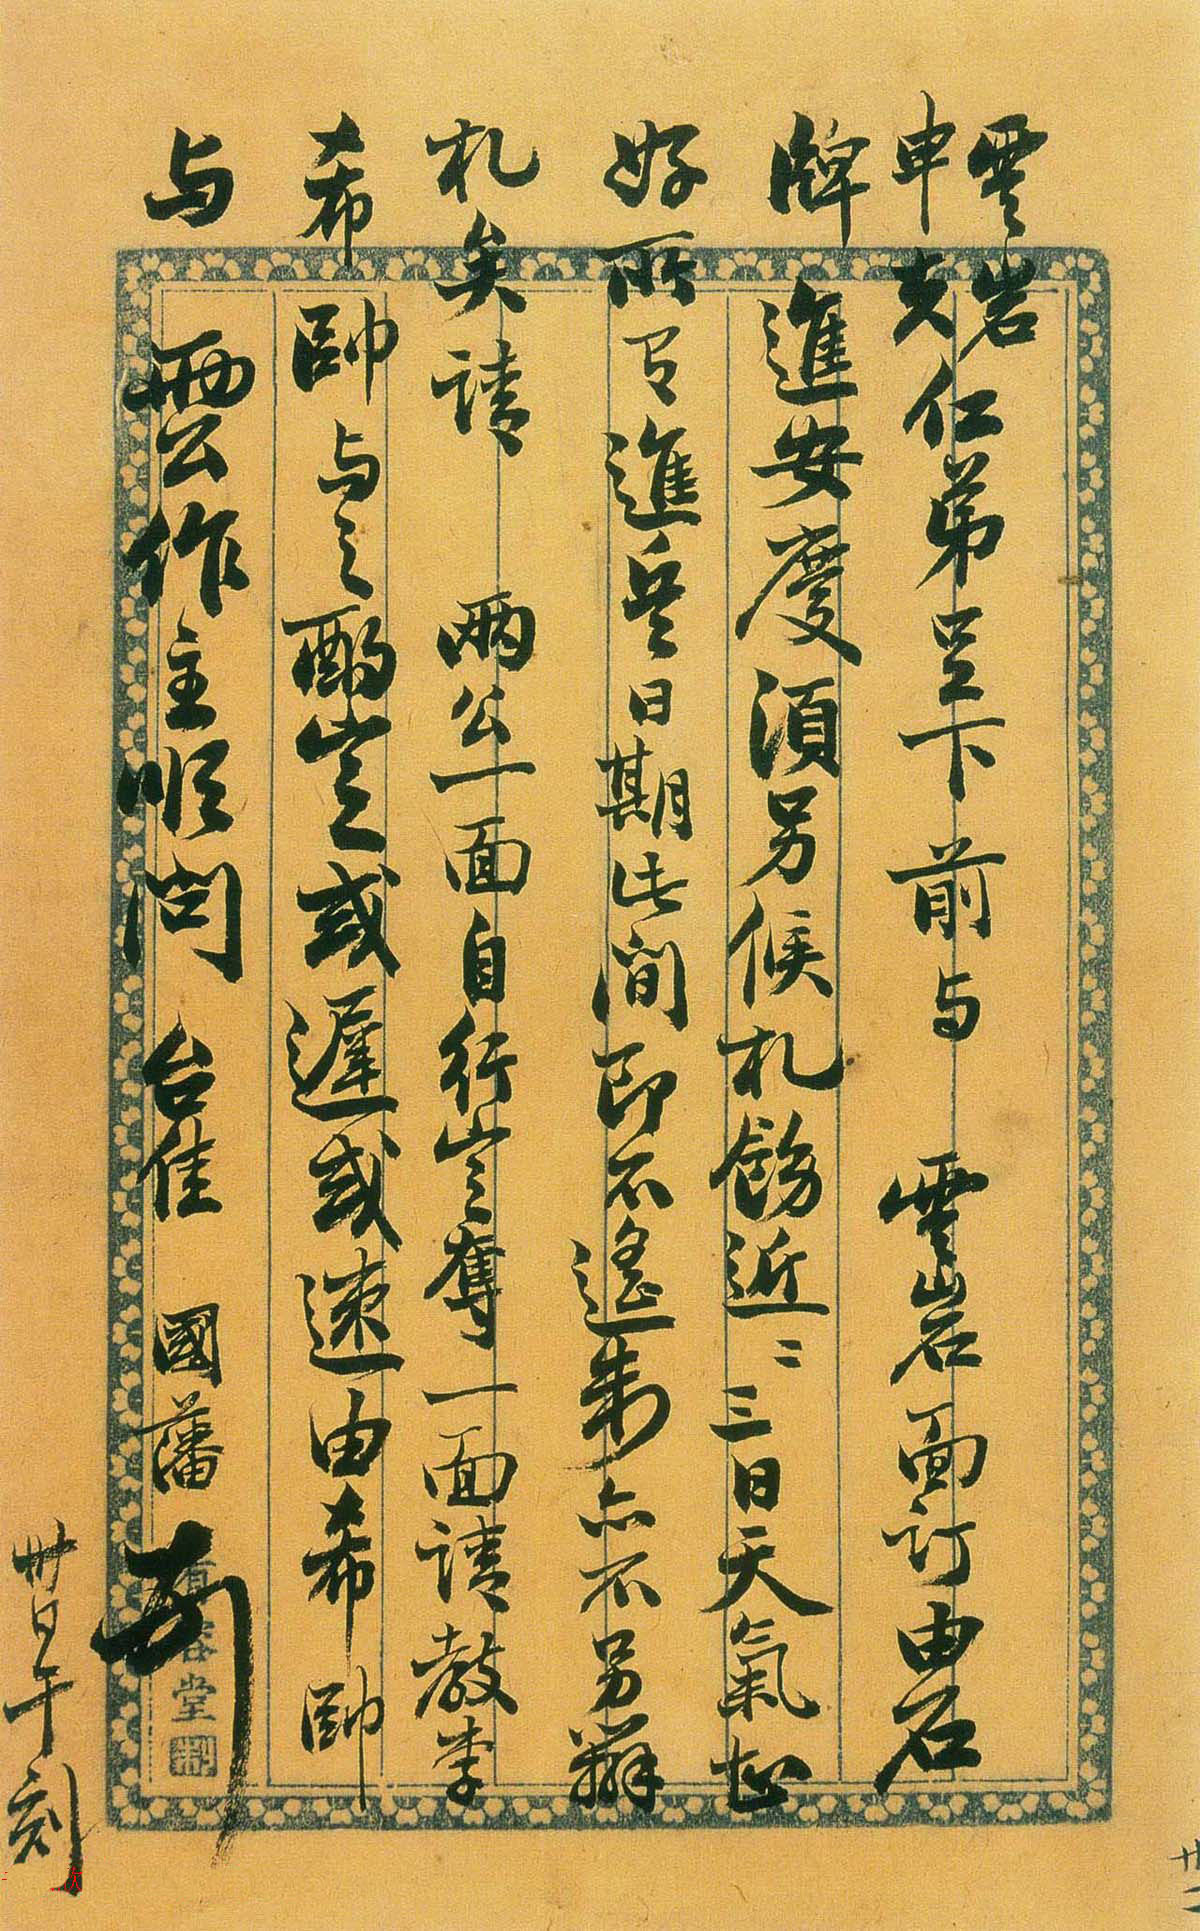 雲岩
申夫仁弟足下前与 雲岩面訂由石
牌進安慶須另候札飭近二三日天氣甚
好所有進兵日期此间即不遙制亦不另辦
札矣請 兩公一面自行定奪一面請教李
希帥与之酌定或遲或速由希帥
与 兩公作主順問 台佳 國藩頓
卅日午刻
堂製